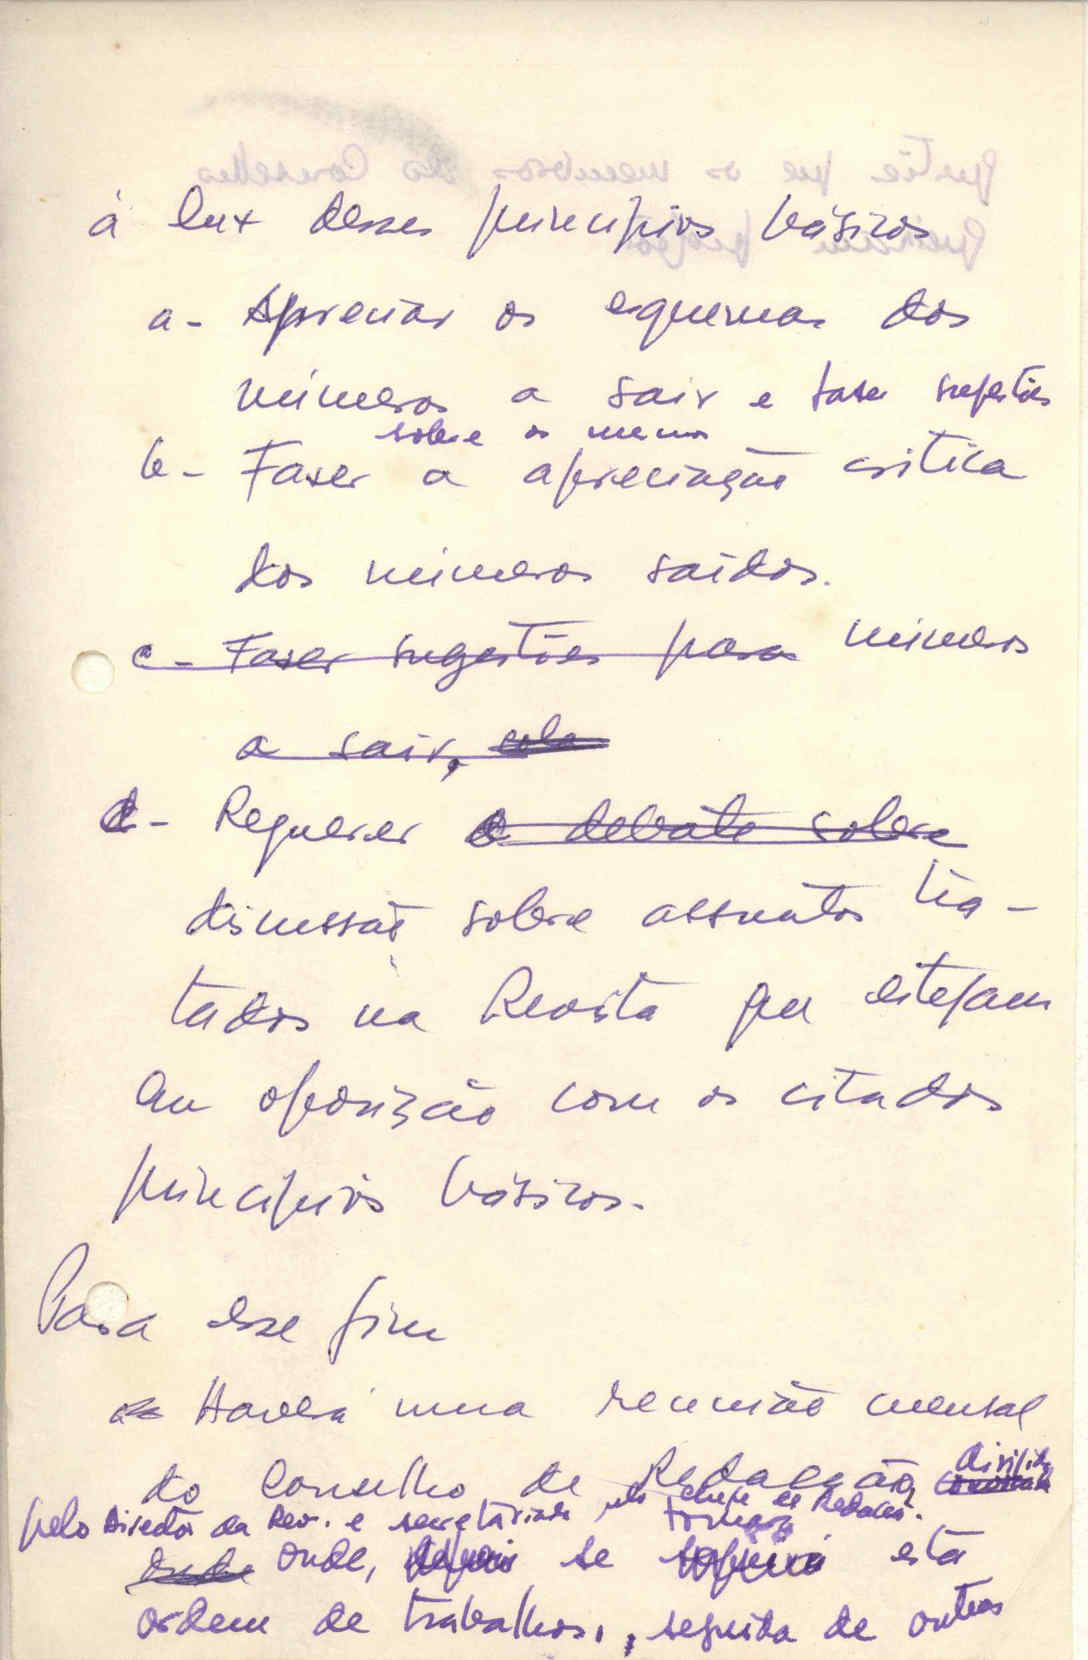 à luz desses princípios básicos
a- Apreciar os esquemas dos
números a sair e fazer sugestões
sobre os mesmos
b- Fazer a apreciação critica
dos números saídos.
c- Fazer sugestões para números
a sair,
c- Requerer o debate sobre
discussão sobre assuntos tra-
tados na Revista que estejam
em oposição com os citados
princípios básicos.
Para esse fim
Haverá uma reunião mensal
do Conselho de Redacção, dirigida
pelo Director da Rev. e secretariada pelo chefe de Redacç.
tomará
onde onde, depois se esta
ordem de trabalhos, seguida de outros